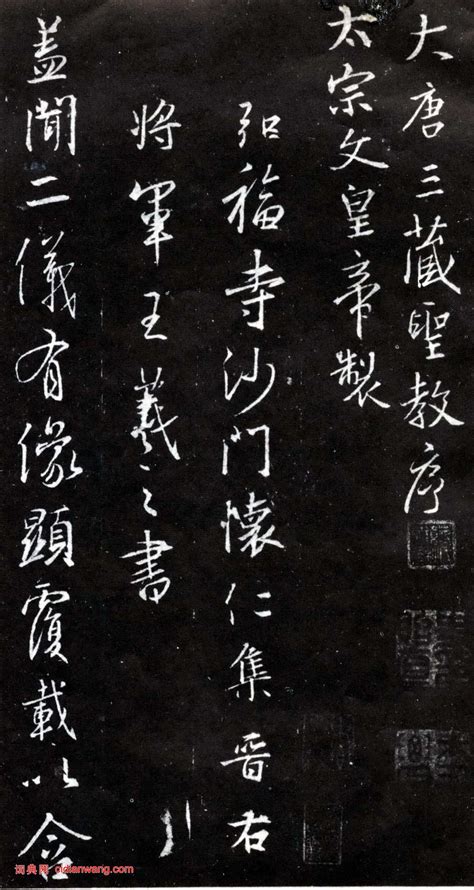 大唐三藏聖教序
太宗文皇帝製
弘福寺沙門懷仁集晋右
将軍王羲之書
盖聞二儀有像顯覆載以含
词典网 cidianwang.com